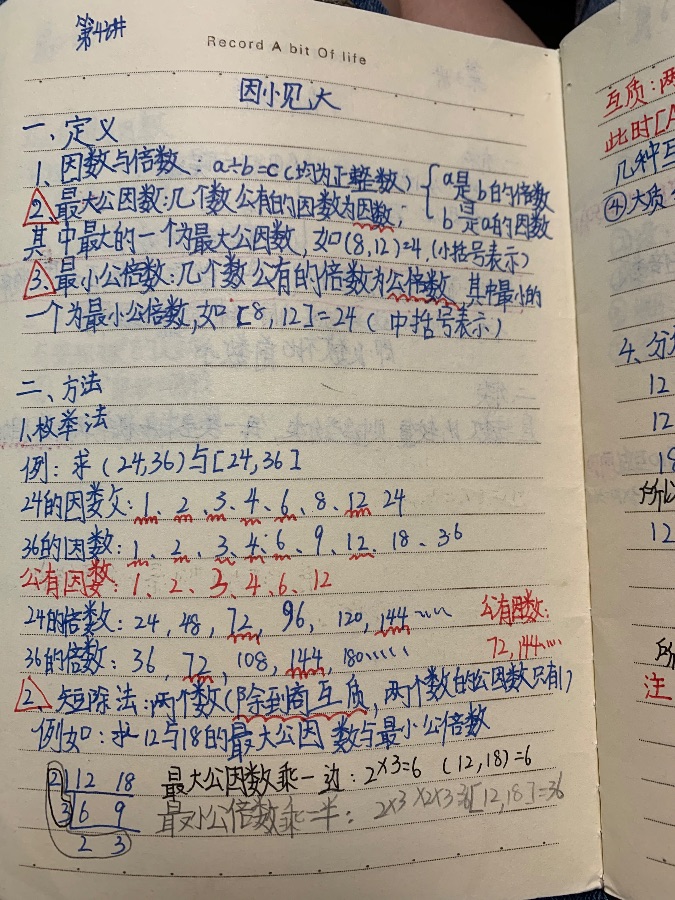 第42讲
Record A bit Of life
因小见大
一、定义
1、因数与倍数：a÷b=c(均为正整数) { a是b的倍数
b是a的因数
2、最大公因数：几个数公有的因数为因数,
其中最大的一个为最大公因数,如(8,12)=4.(小括号表示)
3、最小公倍数：几个数公有的倍数为公倍数,其中最小的
一个为最小公倍数,如[8,12]=24(中括号表示)
二、方法
1.枚举法
例：求(24,36)与[24,36]
24的因数：1、2、3、4、6、8、12 24
36的因数：1、2、3、4、6、9、12、18、36
公有因数：1、2、3、4、6、12
24的倍数：24,48,72,96,120,144……
公有因数：
36的倍数：36,72,108,144,180……
72,144……
2、短除法：两个数(除到商互质,两个数的公因数只有1)
例如：求12与18的最大公因数与最小公倍数
2 12 18
3 6 9
2 3
最大公因数乘一边：2×3=6 (12,18)=6
最小公倍数乘一半：2×3×2×3=[12,18]=36
互质：两
此时[A
几种互
④大质
4、分
12
12
18
所以
12
所
注